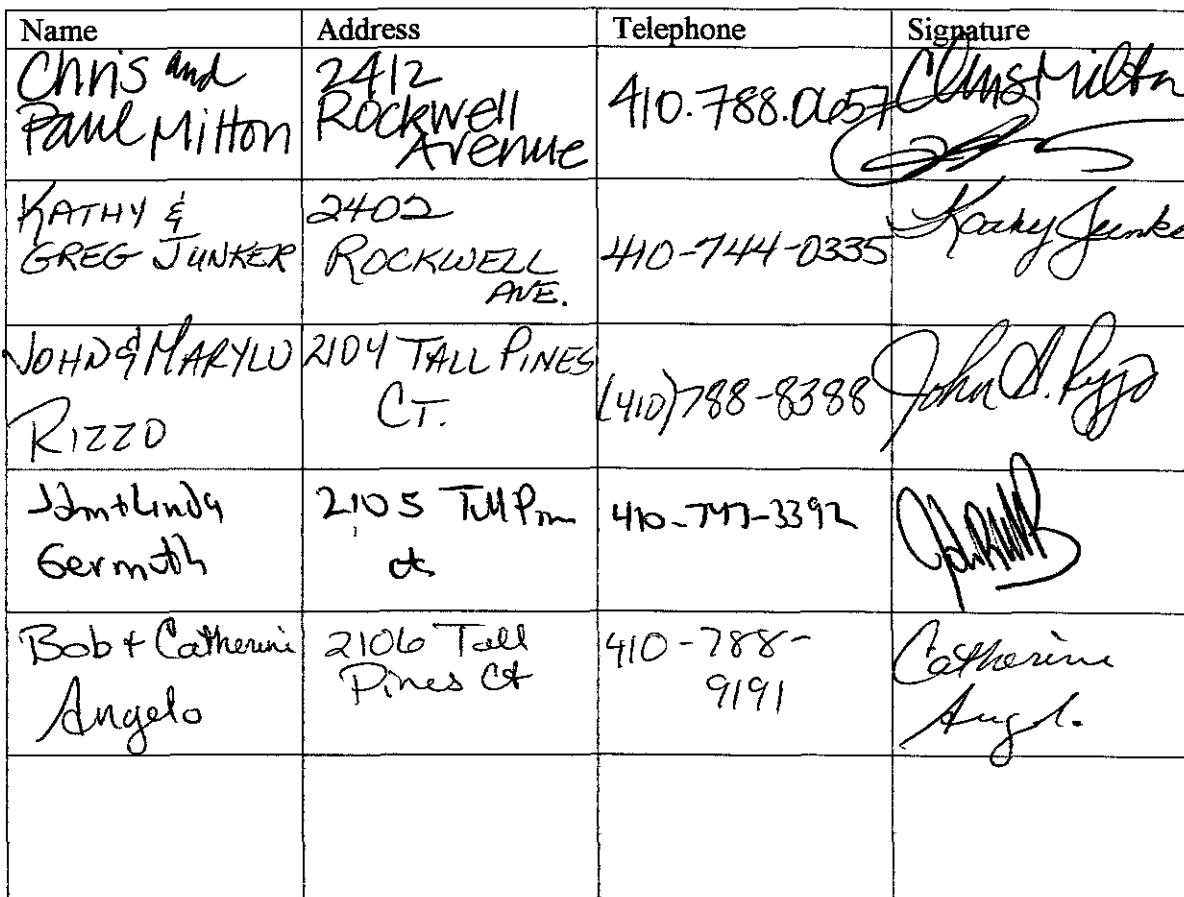 Name Address Telephone Signature
Chris and
Paul Milton
2412
Rockwell
Avenue
410.788.0657
Chris Milton
KATHY &
GREG JUNKER
2402
ROCKWELL
AVE.
410-744-0335
Kathy Junke
JOHN & MARYLU
RIZZO
2104 TALL PINES
CT.
(410)788-8388
John A. Rizzo
John + Linda
Germuth
2105 Tall
ct
410-747-3392
Bob + Catherine
Angelo
2106 Tall
Pines Ct
410-788-
9191
Catherine
Angelo